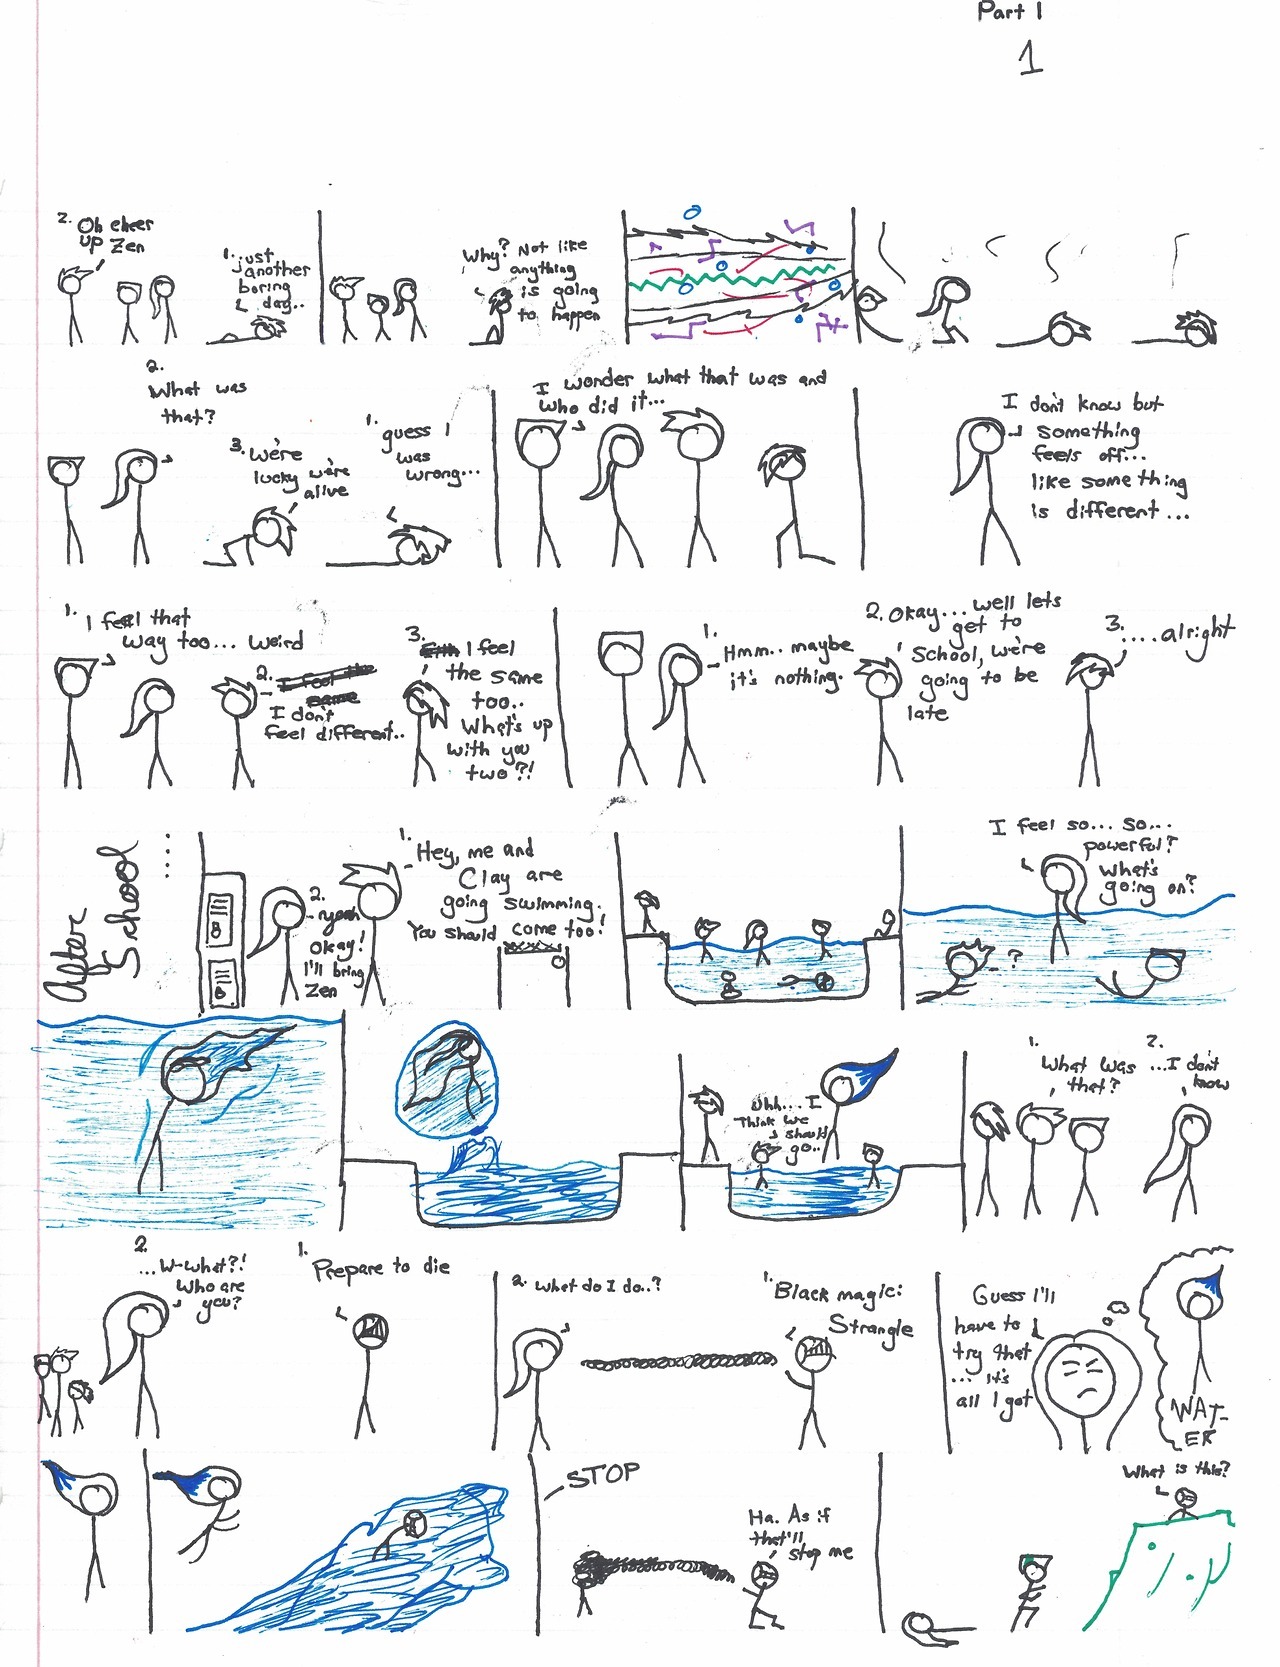 Part 1
1
2. Oh cheer
up Zen
1. just
another
boring
day..
Why? Not like
anything
is going
to happen
2.
What was
that?
3. We're
lucky we're
alive
1.
guess I
was
wrong...
I wonder what that was and
who did it...
I don't know but
something
feels off...
like something
is different...
1.
I feel that
way too... weird
2. I feel the
same
I don't
feel different..
3.
I feel
the same
too..
What's up
with you
two?!
1.
Hmm.. maybe
it's nothing.
2. Okay... well lets
get to
School, we're
going to be
late
3.
....alright
After
School
...
2.
yeah
Okay!
I'll bring
Zen
1.
Hey, me and
Clay are
going swimming.
You should come too!
I feel so... so...
powerful?
What's
going on?
?
Uhh... I
Think we
should
go..
1.
What was
that?
2.
...I don't
know
2.
...W-what?!
Who are
you?
1.
Prepare to die
2. What do I do..?
1.
Black magic:
Strangle
Guess I'll
have to
try that
... it's
all I got
WAT-
ER
STOP
Ha. As if
that'll
stop me
What is this?